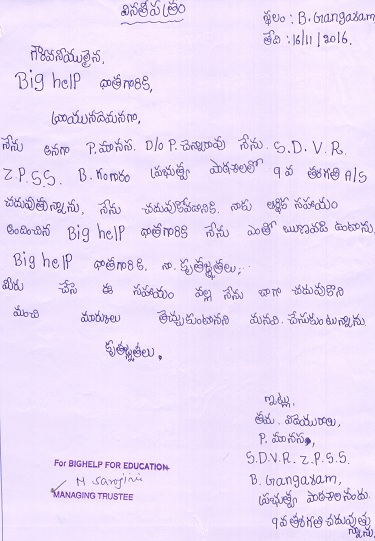 వినతిపత్రం
స్థలం : B. Gangaram,
తేది : 16/11/2016.
గౌరవనీయులైన,
Big help దాతగారికి,
వ్రాయునదేమనగా,
నేను అనగా P. మానస. D/o P. చిన్నారావు నేను. S.D.V.R.
Z.P.S.S. B. గంగారం ప్రభుత్వ పాఠశాలలో 9వ తరగతి A/S
చదువుతున్నాను, నేను చదువుకోవడానికి నాకు ఆర్థిక సహాయం
అందించిన Big help దాతగారికి నేను ఎంతో ఋణపడి ఉంటాను.
Big help దాతగారికి. నా. కృతజ్ఞతలు,
మీరు చేసే ఈ సహాయం వల్ల నేను బాగా చదువుకొని
మంచి మార్కులు తెచ్చుకుంటానని మనవి. చేసుకుంటున్నాను.
కృతజ్ఞతలు.
ఇట్లు,
తమ. విధేయురాలు,
P. మానస,
S.D.V.R. Z.P.S.S.
B. Gangaram,
ప్రభుత్వ పాఠశాలనందు.
9వ తరగతి చదువుతు
న్నాను.
For BIGHELP FOR EDUCATION
M Sarojini
MANAGING TRUSTEE